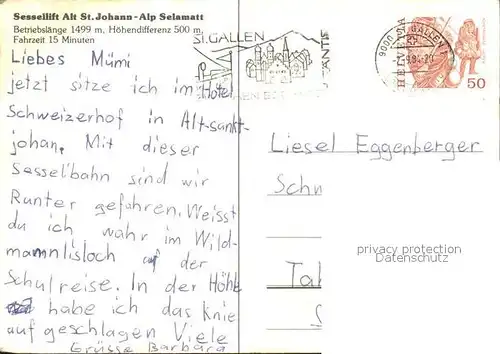 Sessellift Alt St. Johann - Alp Selamatt
Betriebslänge 1499 m, Höhendifferenz 500 m,
Fahrzeit 15 Minuten
Liebes Mümi
jetzt sitze ich im Hotel
Schweizerhof in Alt-sankt-
johan. Mit dieser
Sesselbahn sind wir
Runter gefahren. Weisst
du ich wahr im Wild-
mannlisloch auf der
Schulreise. In der Höhle
habe ich das Knie
auf geschlagen Viele
Grüsse Barbara
ST. GALLEN
9000 ST. GALLEN
HELVETIA
50
Liesel Eggenberger
Schw
privacy protection
Datenschutz